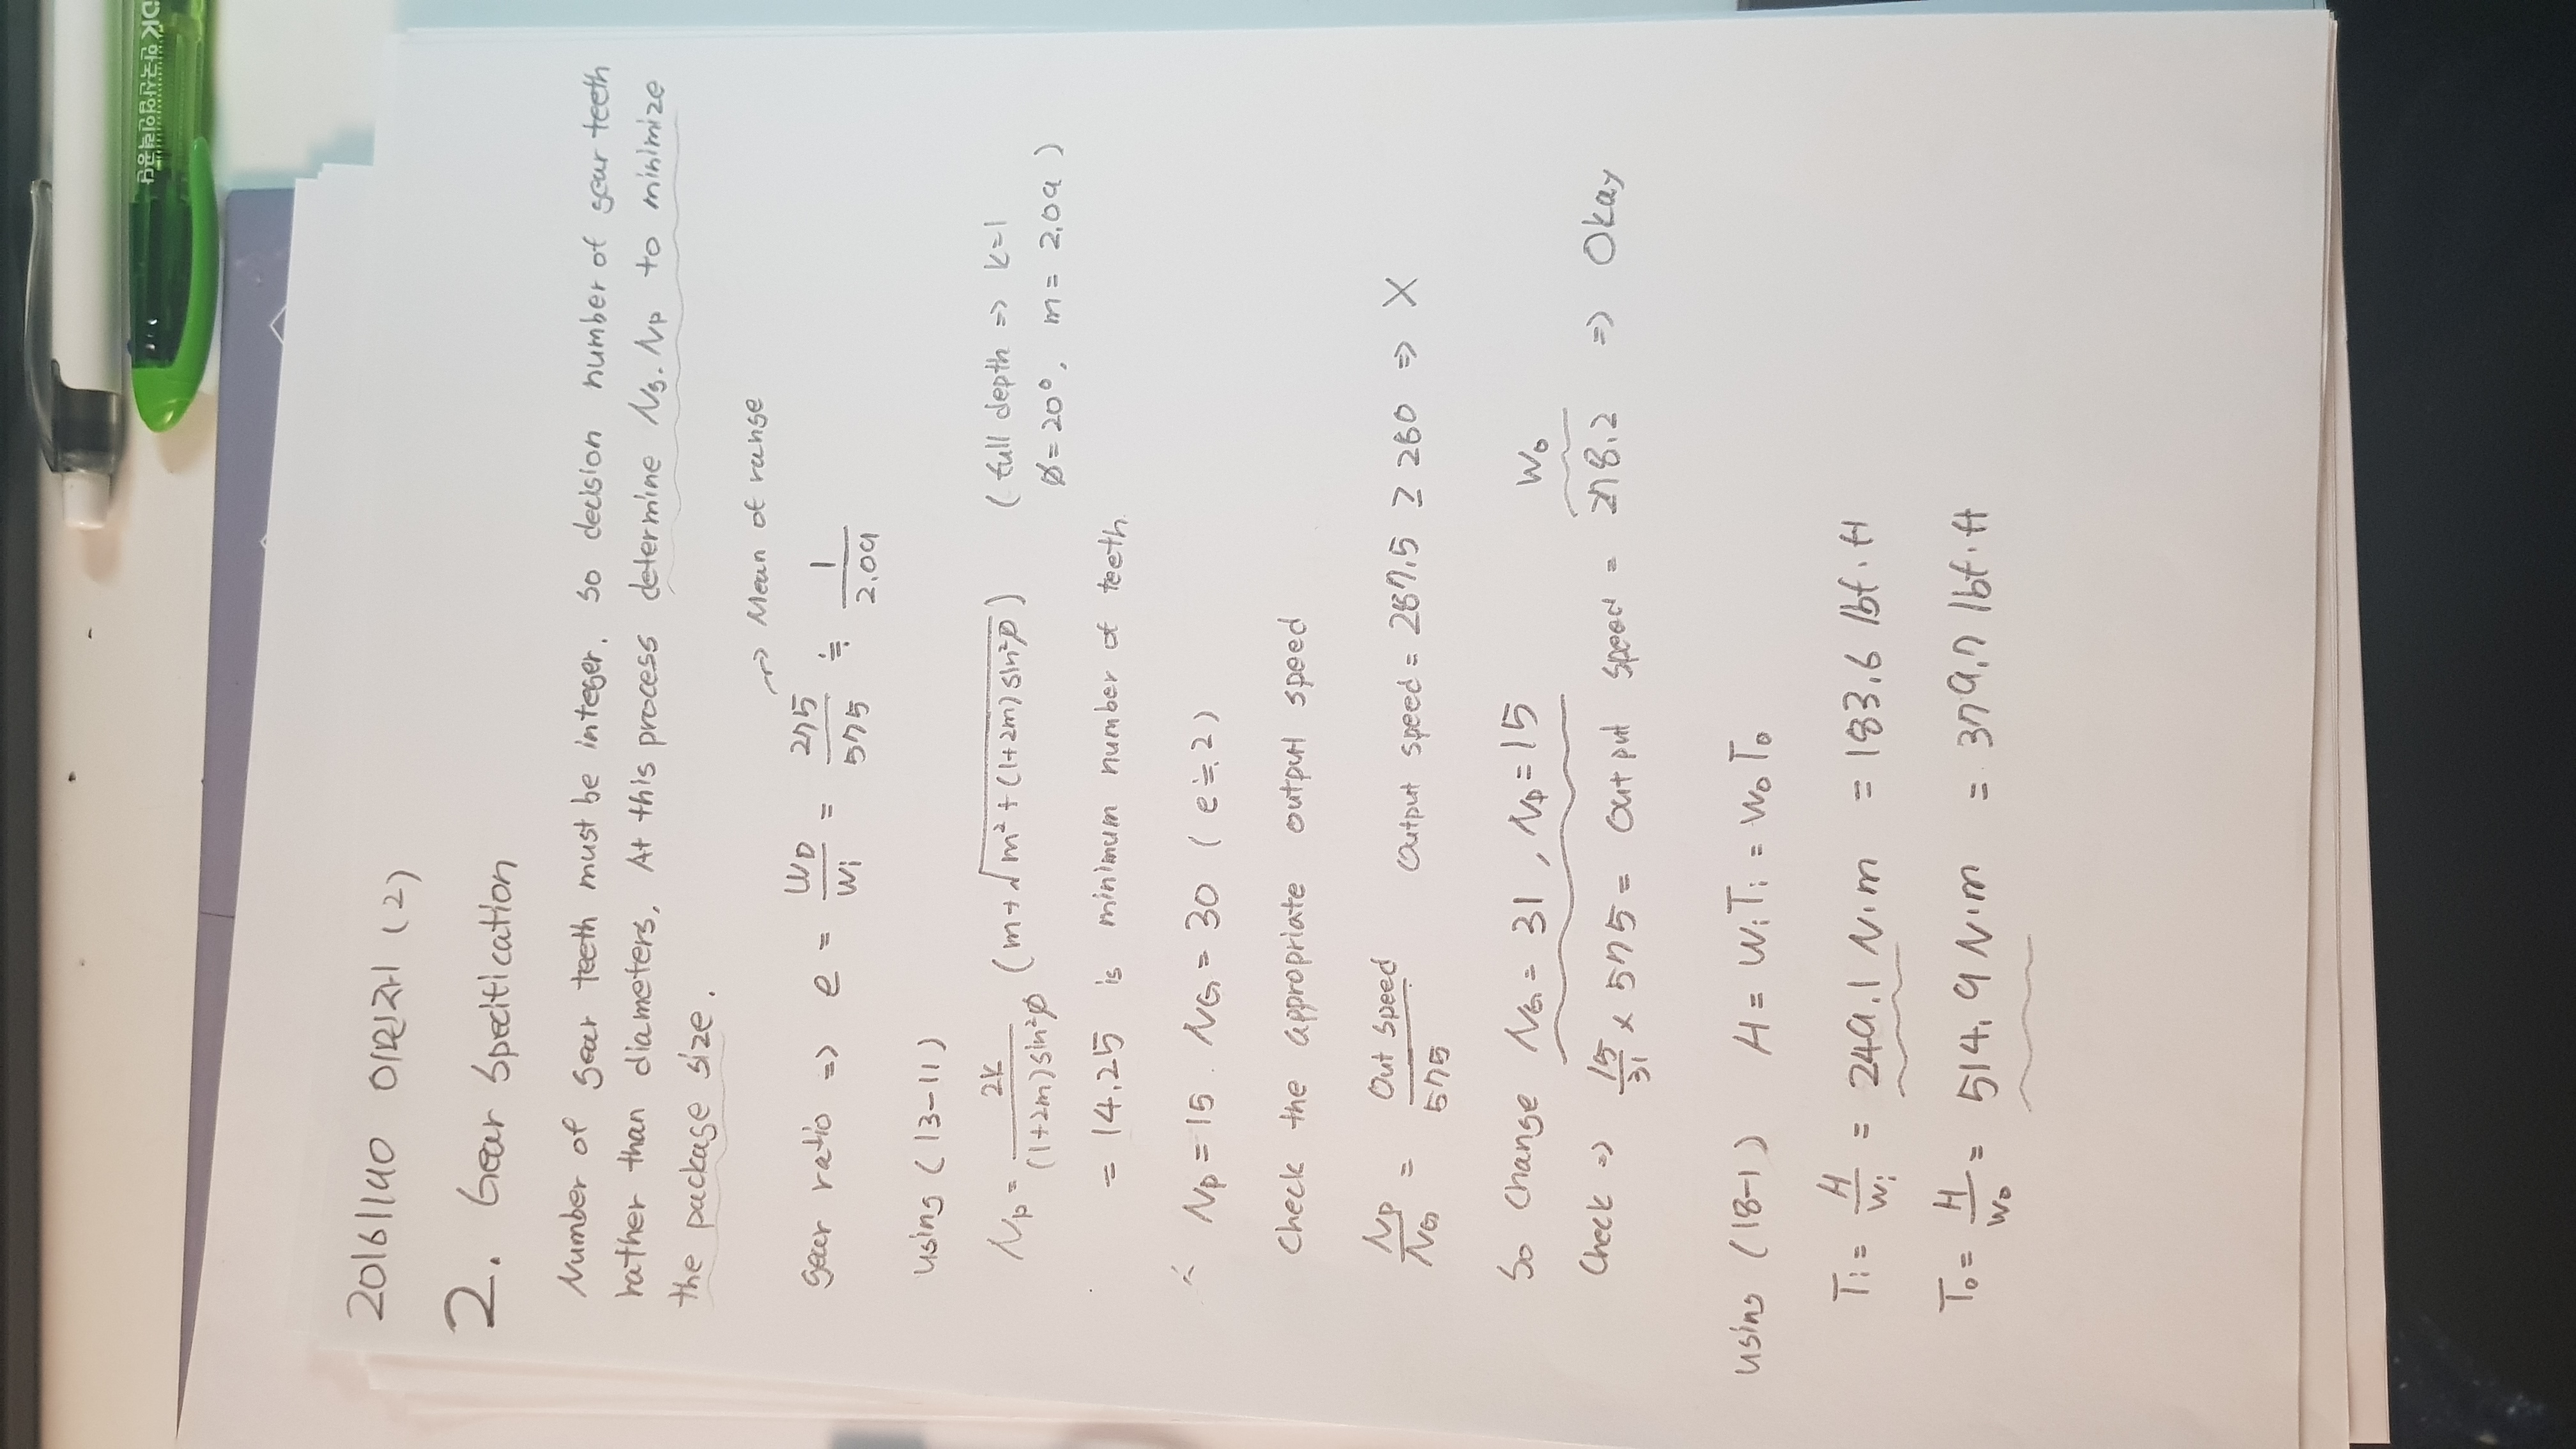 DK 한국산업인력공단
20161140 이민재 (2)
2. Gear Specification
Number of gear teeth must be integer. So decision number of gear teeth
rather than diameters. At this process determine NG. NP to minimize
the package size.
→ Mean of range
gear ratio => e = WO/Wi = 275/575 ≒ 1/2.09
using (13-11)
Np = 2k/((1+2m)sin²ø) (m+√(m²+(1+2m)sin²ø)) (full depth => k=1
ø=20°, m= 2.09)
= 14.25 is minimum number of teeth.
∴ Np=15. NG=30 (e≒2)
Check the appropriate output speed
NP/NG = Out speed/575 Output speed = 287.5 ≥ 280 => X
So Change NG= 31, Np=15
Wo
Check => 15/31 × 575 = Output speed = 278.2 => Okay
using (18-1) H = WiTi = WoTo
Ti = H/Wi = 249.1 N·m = 183.6 lbf·ft
To = H/Wo = 514.9 N·m = 379.7 lbf·ft